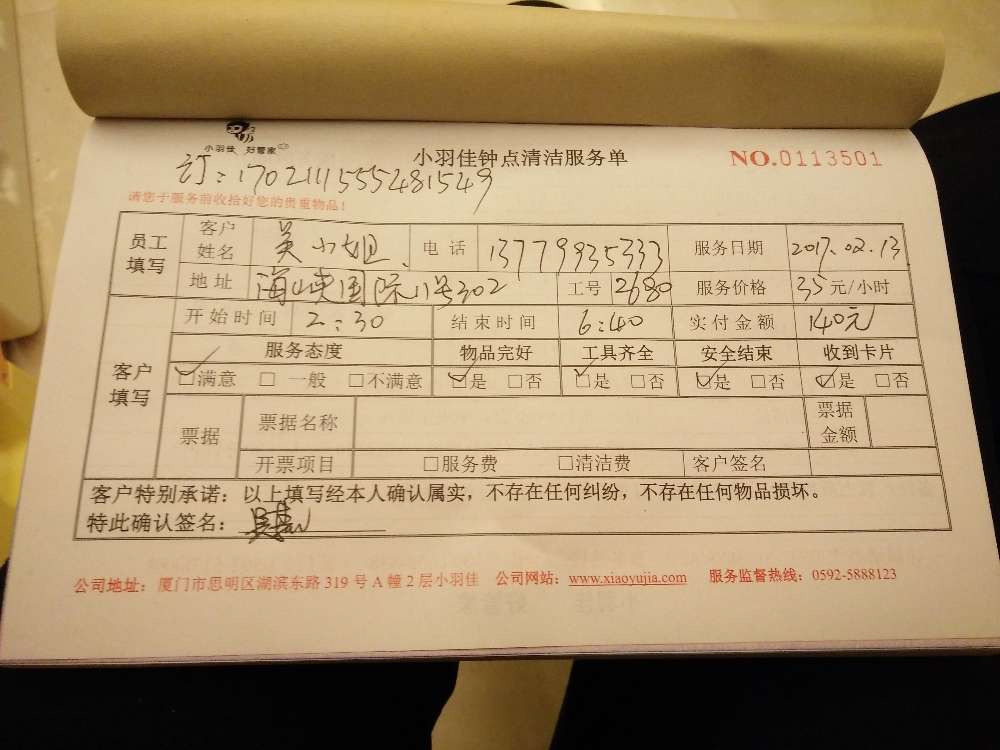 小羽佳 好管家
小羽佳钟点清洁服务单 NO.0113501
订:1702111555481549
请您于服务前收拾好您的贵重物品!
员工填写 客户姓名 吴小姐 电话 13779935333 服务日期 2017.02.13
地址 海峡国际11号302 工号 2680 服务价格 35元/小时
客户填写 开始时间 2:30 结束时间 6:40 实付金额 140元
服务态度 物品完好 工具齐全 安全结束 收到卡片
☑满意 □一般 □不满意 ☑是 □否 ☑是 □否 ☑是 □否 ☑是 □否
票据 票据名称 票据金额
开票项目 □服务费 □清洁费 客户签名
客户特别承诺:以上填写经本人确认属实,不存在任何纠纷,不存在任何物品损坏。
特此确认签名:
公司地址:厦门市思明区湖滨东路319号A幢2层小羽佳 公司网站:www.xiaoyujia.com 服务监督热线:0592-5888123